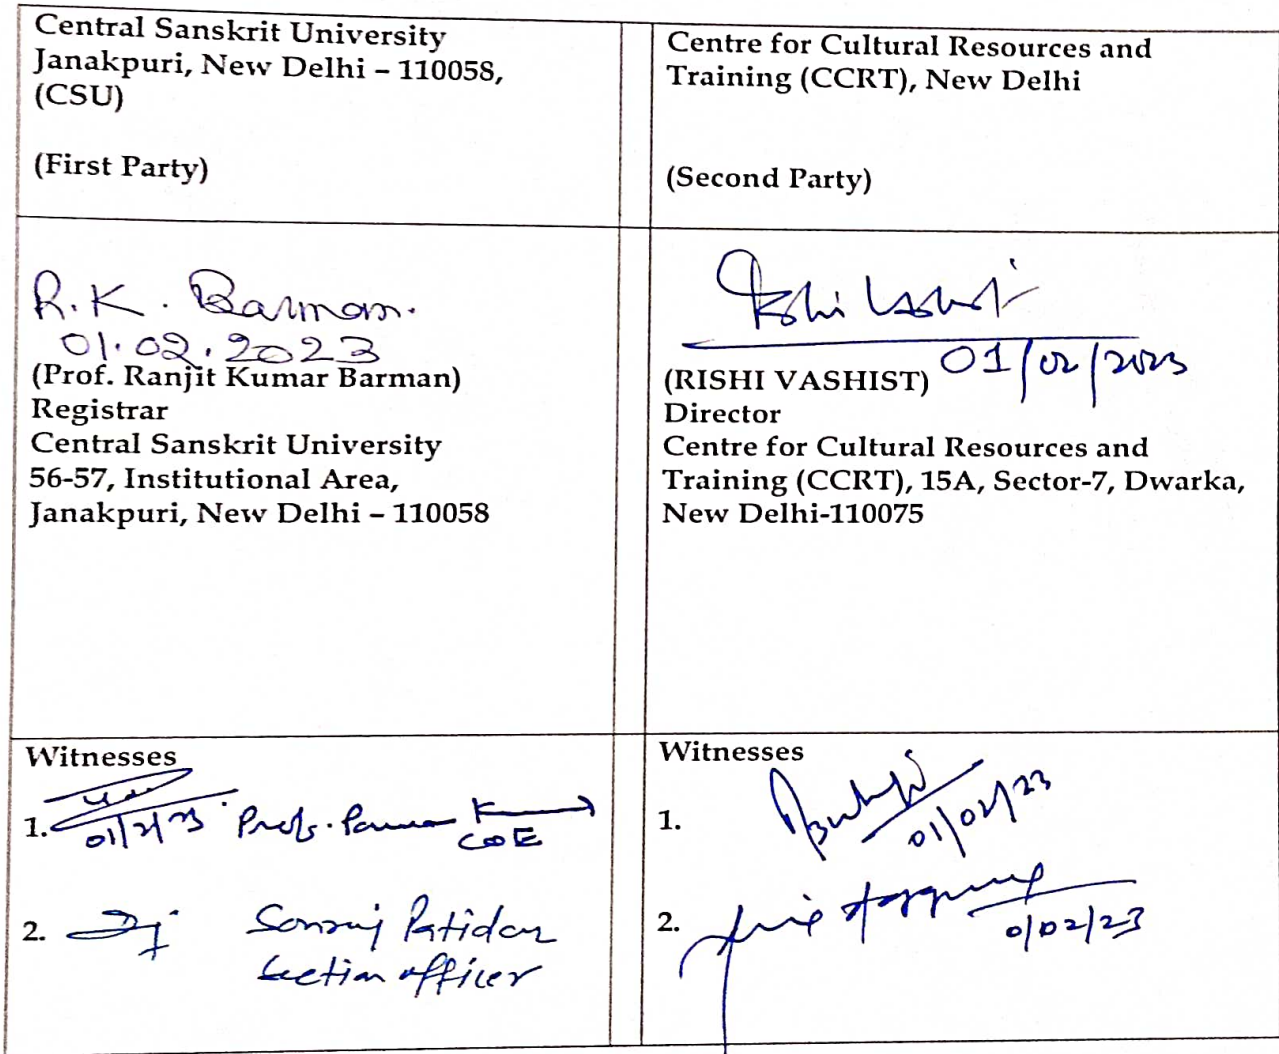 Central Sanskrit University
Janakpuri, New Delhi – 110058,
(CSU)
(First Party)
Centre for Cultural Resources and
Training (CCRT), New Delhi
(Second Party)
R. K. Barman.
01.02.2023
(Prof. Ranjit Kumar Barman)
Registrar
Central Sanskrit University
56-57, Institutional Area,
Janakpuri, New Delhi – 110058
Rishi Vashist
01/02/2023
(RISHI VASHIST)
Director
Centre for Cultural Resources and
Training (CCRT), 15A, Sector-7, Dwarka,
New Delhi-110075
Witnesses
1.
01/2/23 Prof.
COE
2. Patidar
Section officer
Witnesses
1.
01/02/23
2.
01/02/23